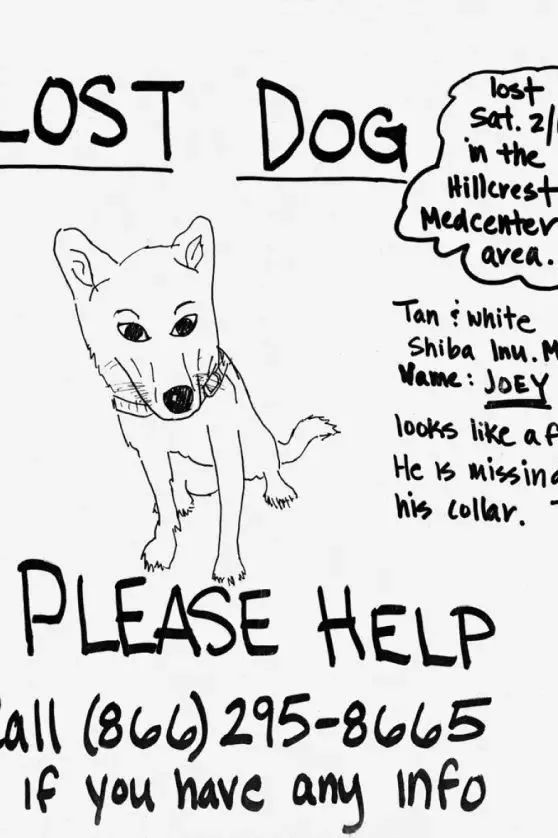 LOST DOG
lost
Sat. 2/
in the
Hillcrest
Medcenter
area.
Tan & white
Shiba Inu. M
Name: JOEY
looks like a f
He is missing
his collar.
PLEASE HELP
Call (866) 295-8665
if you have any info